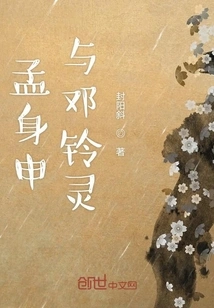 与邓铃灵
孟身申
封阳斜
著
创世中文网